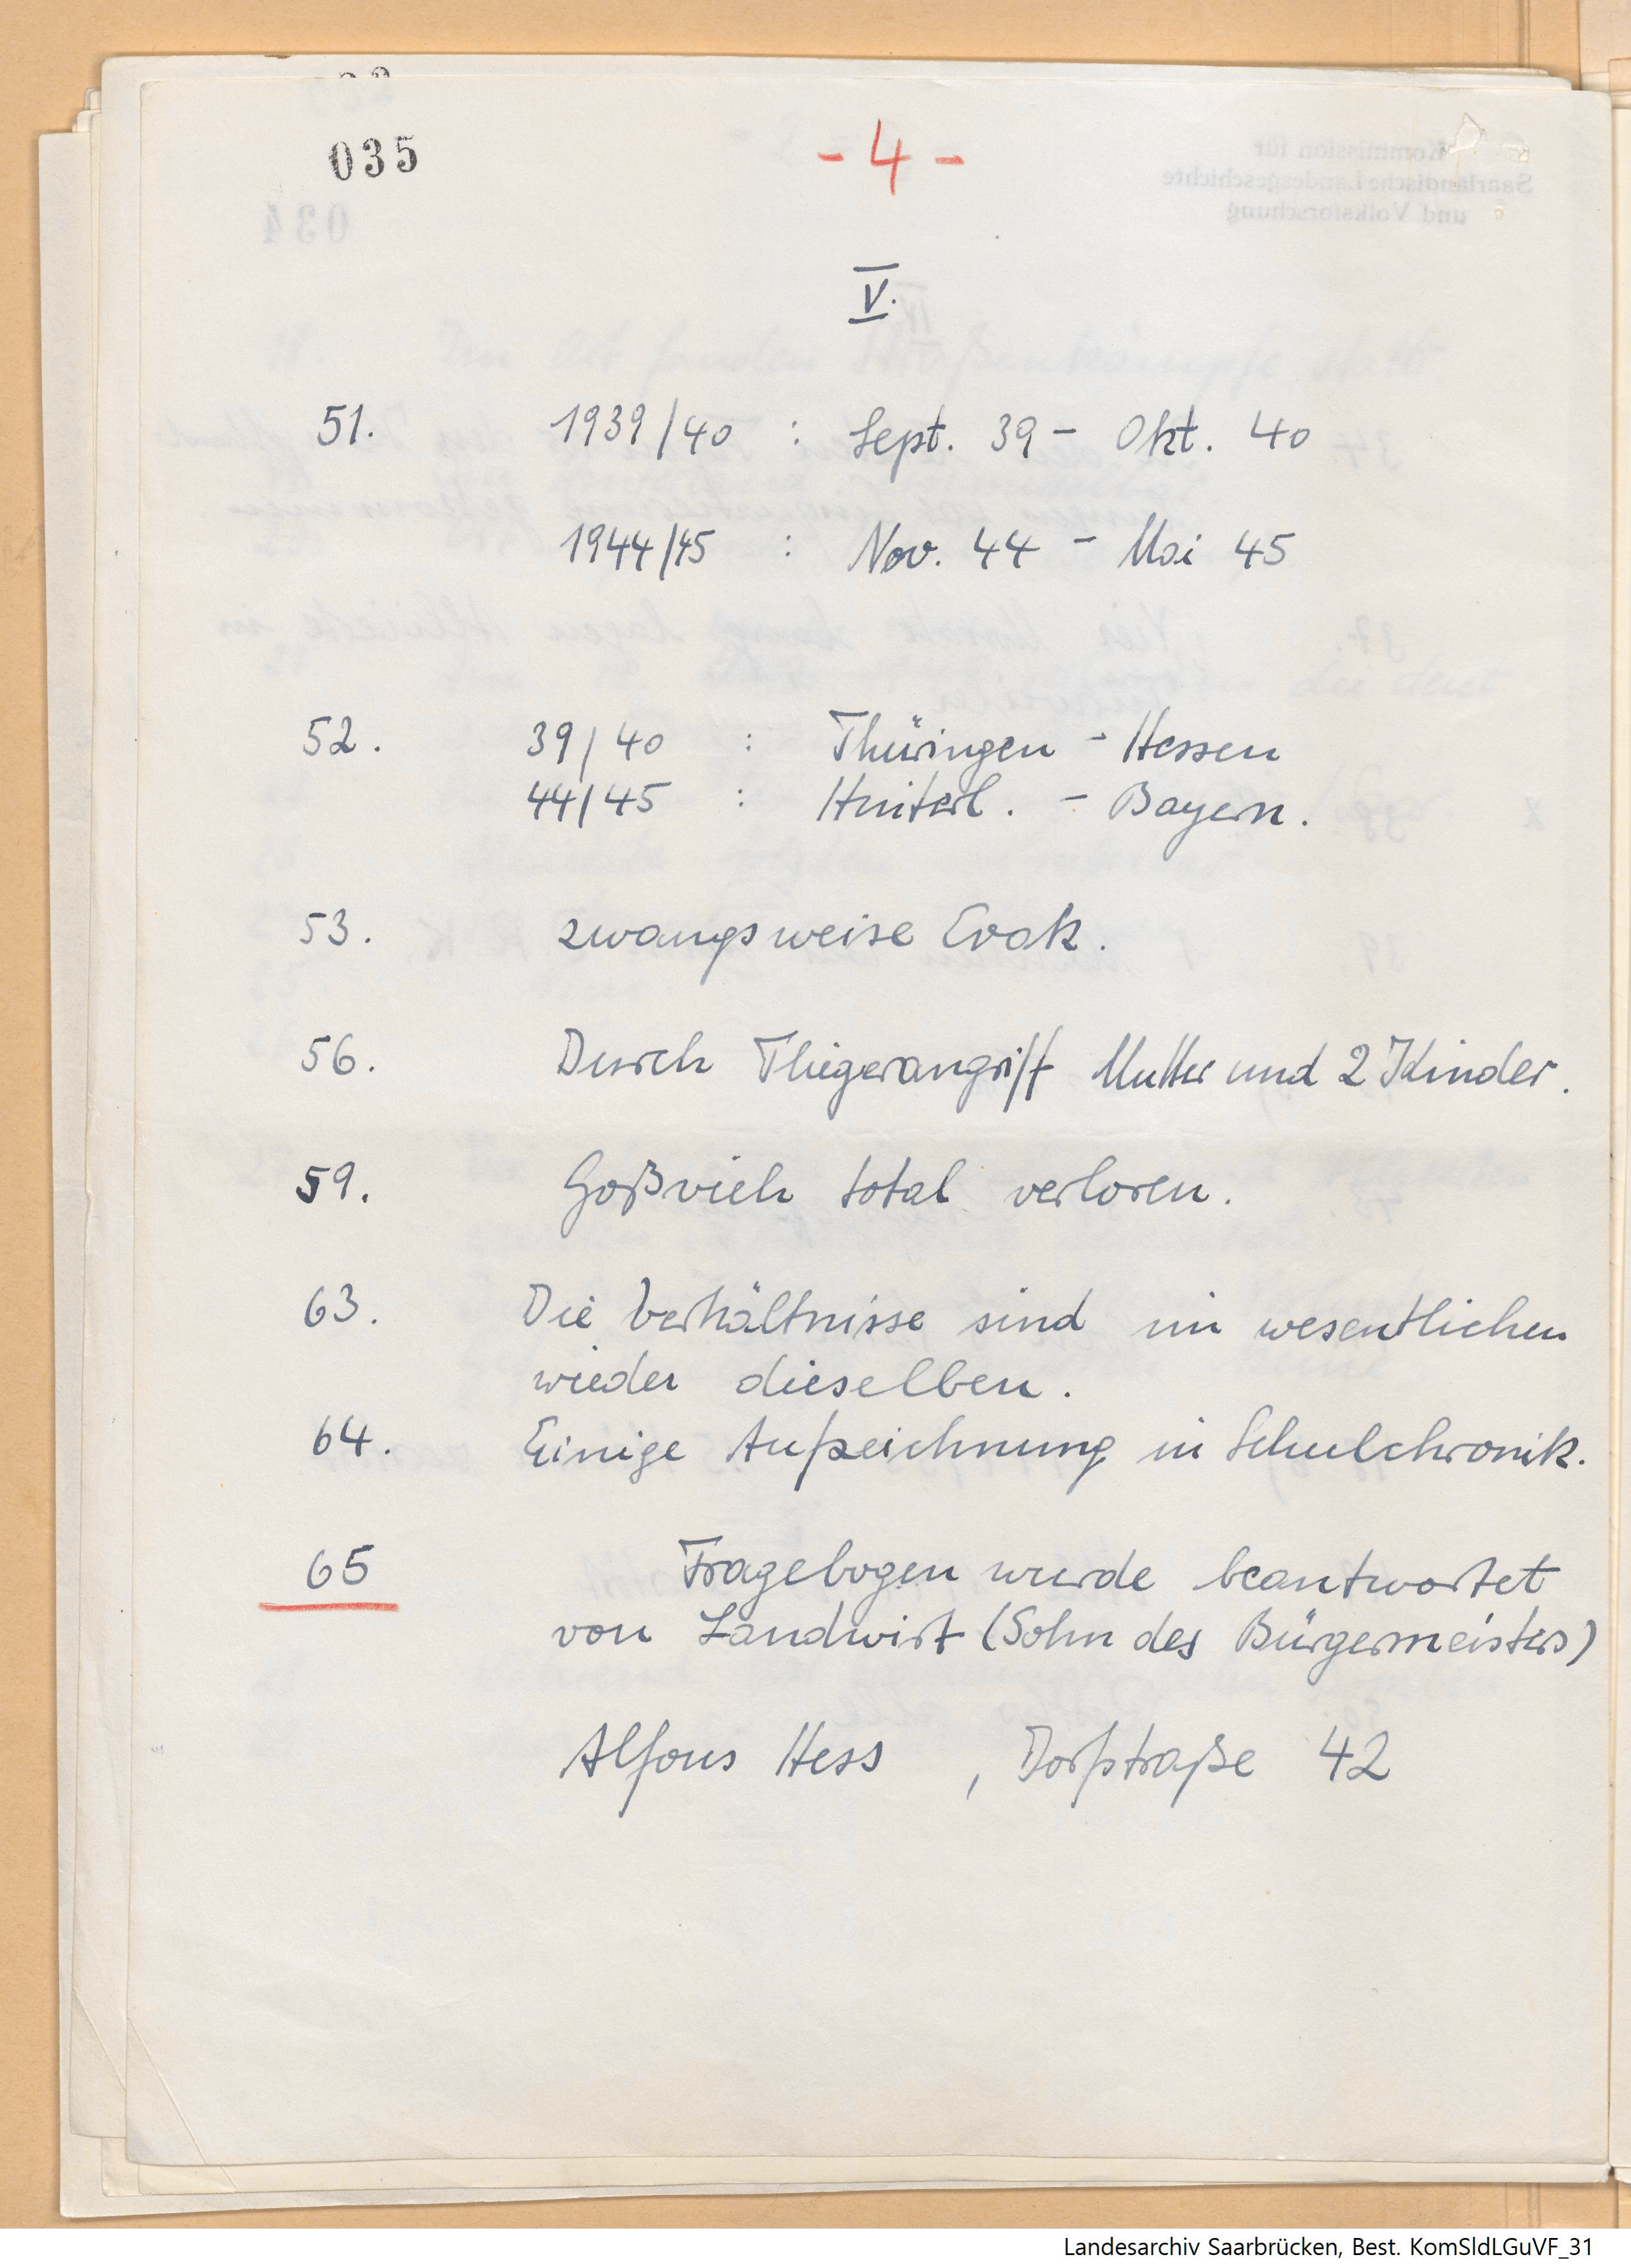 035
- 4 -
V.
51. 1939/40 : Sept. 39 - Okt. 40
1944/45 : Nov. 44 - Mai 45
52. 39/40 : Thüringen - Hessen
44/45 : Hinterl. - Bayern.
53. zwangsweise Evak.
56. Durch Fliegerangriff Mutter und 2 Kinder.
59. Goßvieh total verloren.
63. Die Verhältnisse sind im wesentlichen
wieder dieselben.
64. Einige Aufzeichnung in Schulchronik.
65 Fragebogen wurde beantwortet
von Landwirt (Sohn des Bürgermeisters)
Alfons Hess , Dorfstraße 42
Landesarchiv Saarbrücken, Best. KomSldLGuVF_31